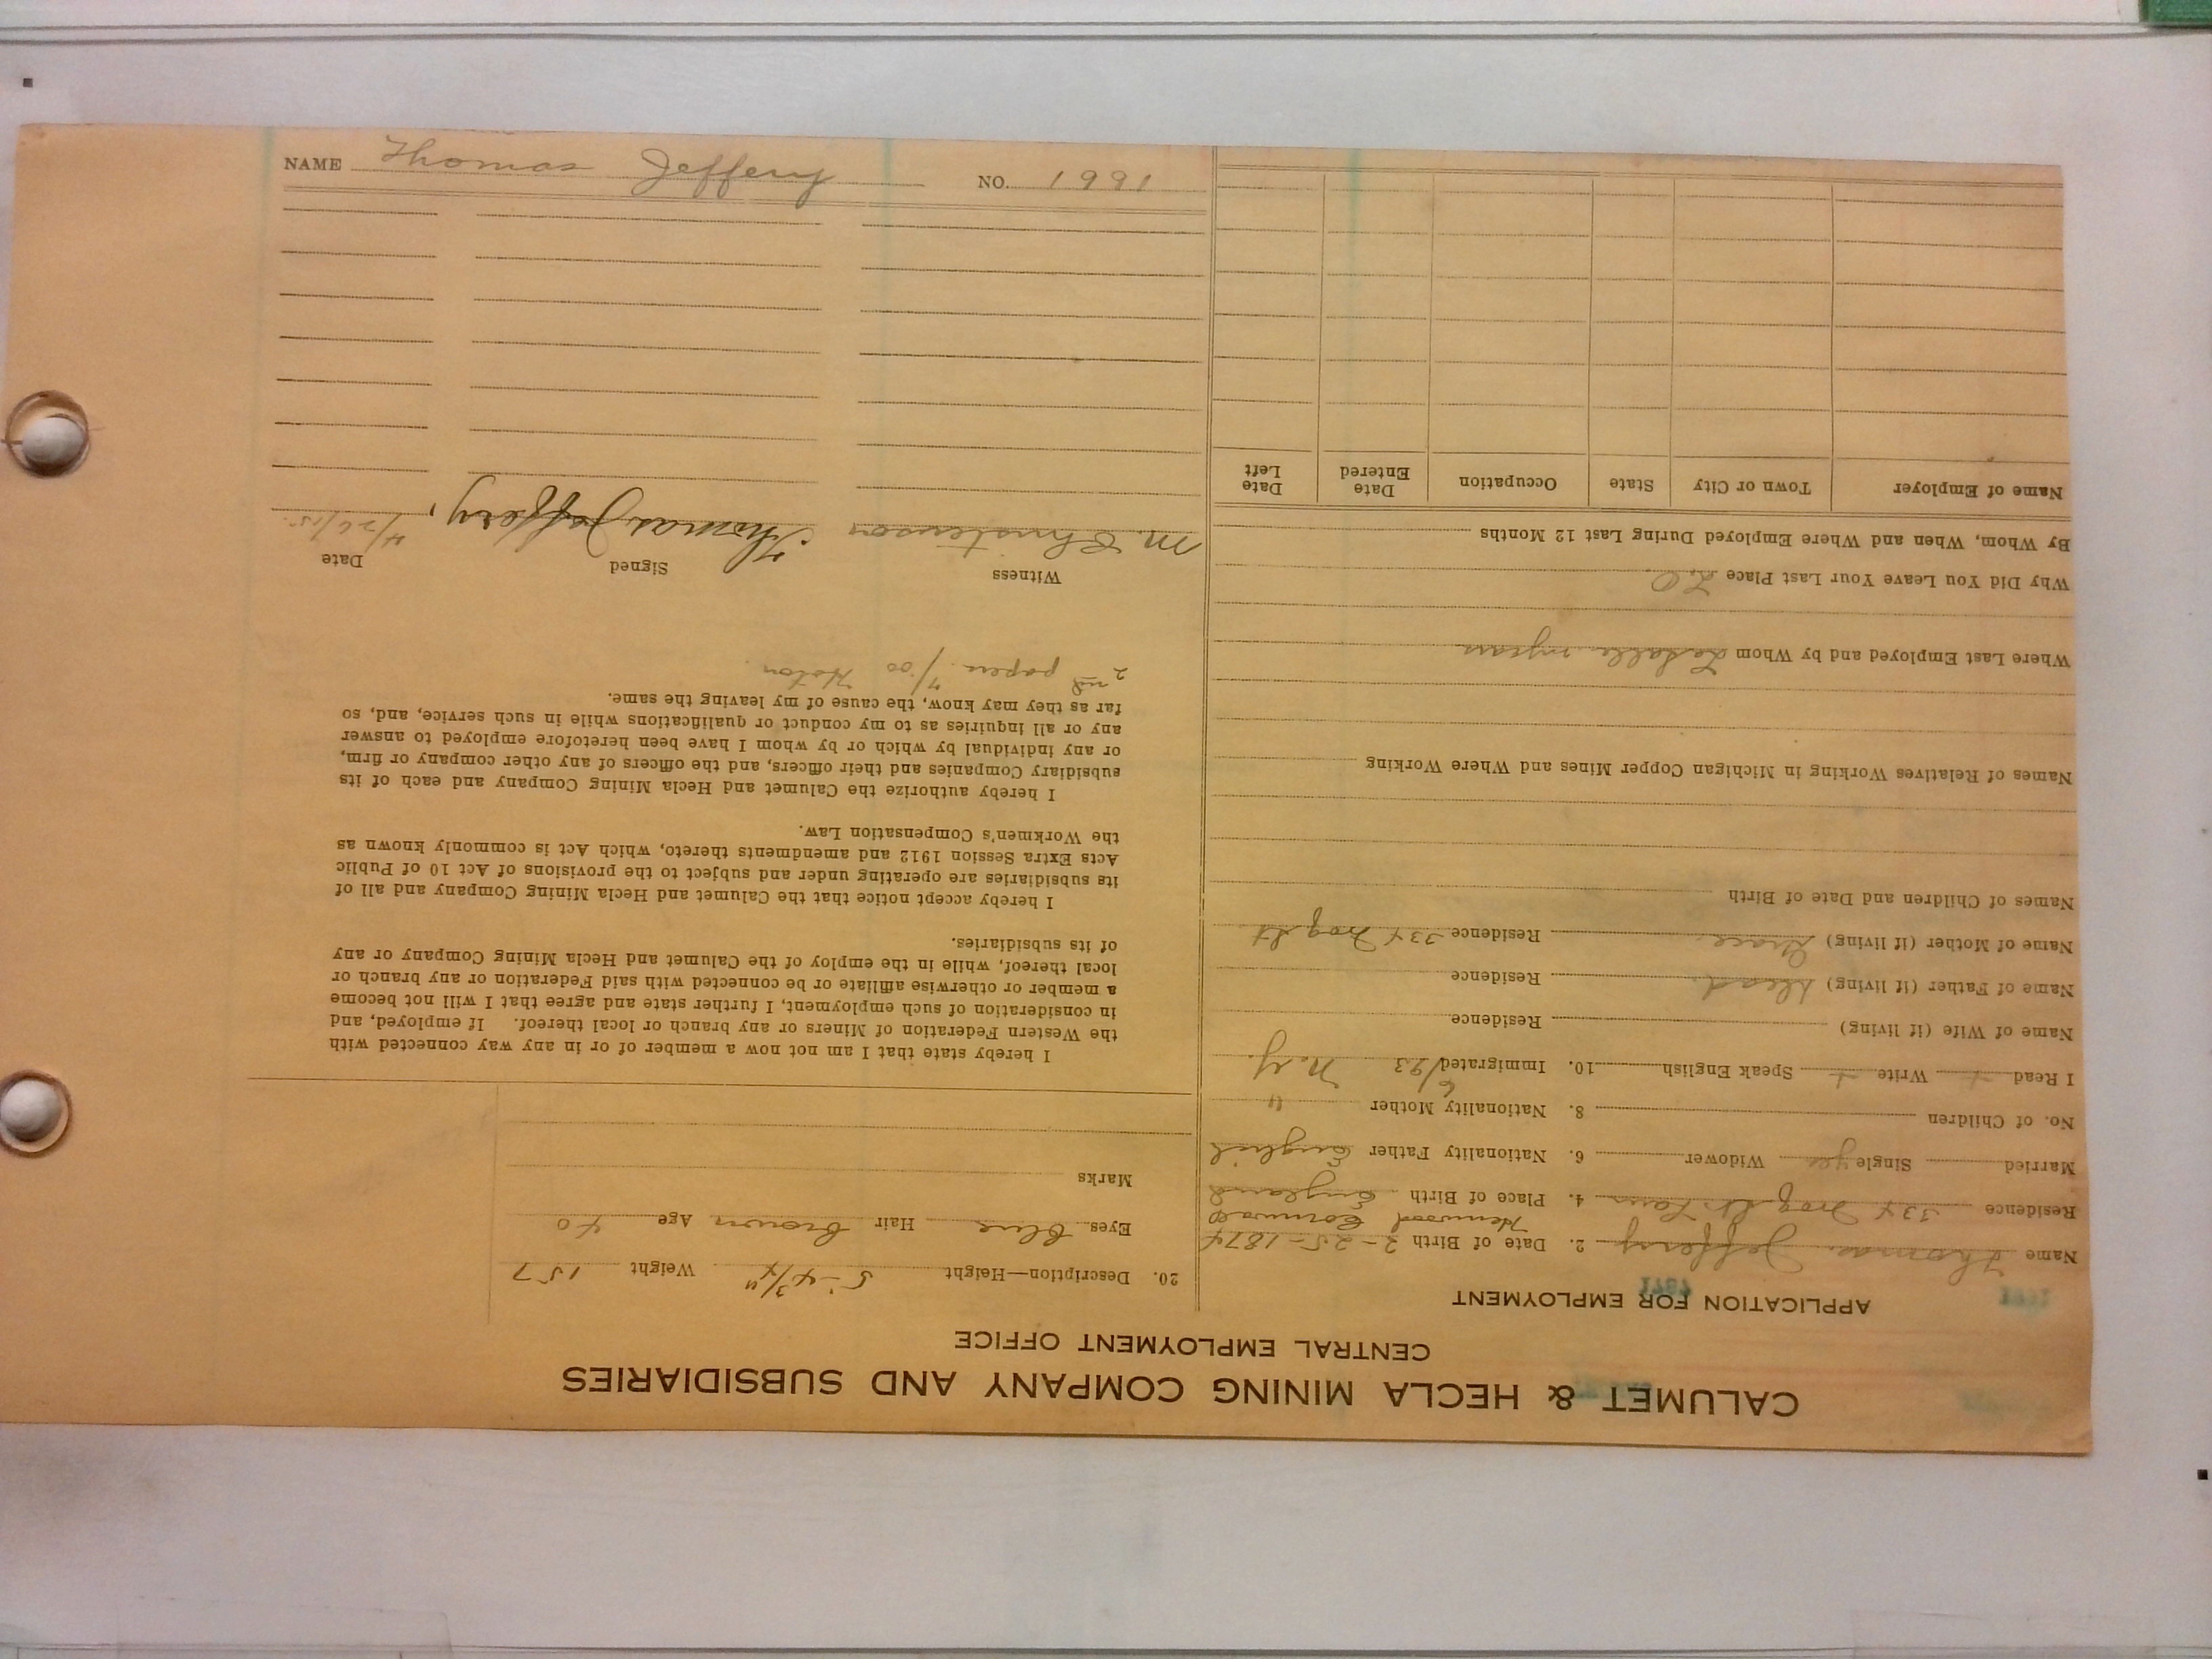 CALUMET & HECLA MINING COMPANY AND SUBSIDIARIES
CENTRAL EMPLOYMENT OFFICE
APPLICATION FOR EMPLOYMENT
Name Thomas Jeffery 2. Date of Birth 2-25-1874
Henwood Cornwall
Residence 334 Frog St. Laur 4. Place of Birth England
Married Single yes Widower 6. Nationality Father English
No. of Children 8. Nationality Mother "
I Read + Write + Speak English 10. Immigrated 6/93 N.Y.
Name of Wife (if living) Residence
Name of Father (if living) dead Residence
Name of Mother (if living) Grace Residence 334 Frog St.
Names of Children and Date of Birth
Names of Relatives Working in Michigan Copper Mines and Where Working
Where Last Employed and by Whom LaSalle
Why Did You Leave Your Last Place L.O.
By Whom, When and Where Employed During Last 12 Months
Name of Employer Town or City State Occupation Date Entered Date Left
20. Description—Height 5-4 3/4" Weight 157
Eyes Blue Hair Brown Age 40
Marks
I hereby state that I am not now a member of or in any way connected with
the Western Federation of Miners or any branch or local thereof. If employed, and
in consideration of such employment, I further state and agree that I will not become
a member or otherwise affiliate or be connected with said Federation or any branch or
local thereof, while in the employ of the Calumet and Hecla Mining Company or any
of its subsidiaries.
I hereby accept notice that the Calumet and Hecla Mining Company and all of
its subsidiaries are operating under and subject to the provisions of Act 10 of Public
Acts Extra Session 1912 and amendments thereto, which Act is commonly known as
the Workmen's Compensation Law.
I hereby authorize the Calumet and Hecla Mining Company and each of its
subsidiary Companies and their officers, and the officers of any other company or firm,
or any individual by which or by whom I have been heretofore employed to answer
any or all inquiries as to my conduct or qualifications while in such service, and, so
far as they may know, the cause of my leaving the same.
2nd papers 7/00 Hoton
Witness Signed Date
M. Christenson Thomas Jeffery, 4/26/15.
NAME Thomas Jeffery NO. 1991